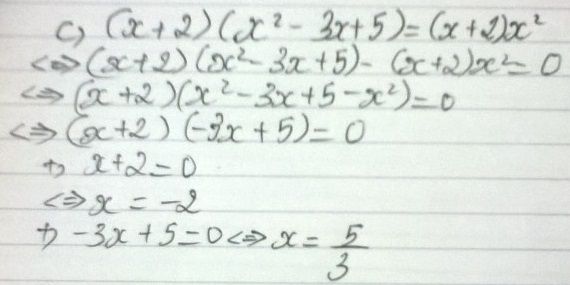 c, (x+2)(x² - 3x+5)=(x+2)x²
<=> (x+2)(x²- 3x+5)- (x+2)x²= 0
<=> (x+2)(x²-3x+5-x²)=0
<=> (x+2)(-3x+5)=0
+, x+2=0
<=> x = -2
+, -3x+5=0 <=> x= 5/3